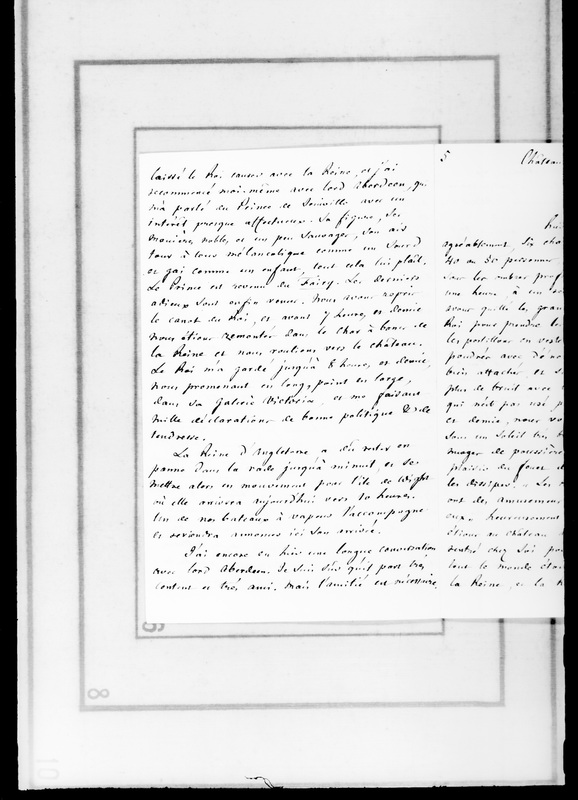 laissé le Roi causer avec la Reine, et j'ai
recommencé moi-même avec lord Aberdeen, qui
m'a parlé du Prince de Joinville avec un
intérêt presque affectueux. Sa figure, ses
manières nobles et un peu sauvages, son air
tour à tour mélancolique comme un sourd
et gai comme un enfant, tout cela lui plaît.
Le Prince est revenu du Fairy. Les derniers
adieux sont enfin venus. Nous avons repris
le canot du Roi, et avant 7 heures et demie
nous étions remontés dans le char à bancs de
la Reine et nous roulions vers le château.
Le Roi m'a gardé jusqu'à 8 heures et demie,
nous promenant en long, puis en large,
dans sa galerie Victoria, et me faisant
mille déclarations de bonne politique & de
tendresse.
La Reine d'Angleterre a dû rester en
panne dans la rade jusqu'à minuit et se
mettre alors en mouvement pour l'île de Wight
où elle arrivera aujourd'hui vers 10 heures.
Un de nos bateaux à vapeur l'accompagne
et reviendra annoncer ici son arrivée.
J'ai encore eu hier une longue conversation
avec lord Aberdeen. Je suis sûr qu'il part très
content et très ami. Mais l'amitié est nécessaire,
5 Château
agréablement. Six cha
40 ou 50 personnes
sous les arbres
une heure à un
avons quitté les gran
Roi pour prendre
les postillons en veste
poudrés avec
bien attaché et
plus de bruit avec
qui n'est pas
et demie, nous
sous un soleil très
nuage de poussière
plaisir du
les dissiper. Le
ont des amusemens
eux. heureusement
étions au château
rentré chez soi
tout le monde étai
la Reine, et la R